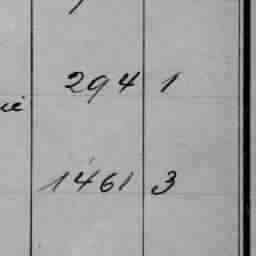 294 1
1461 3